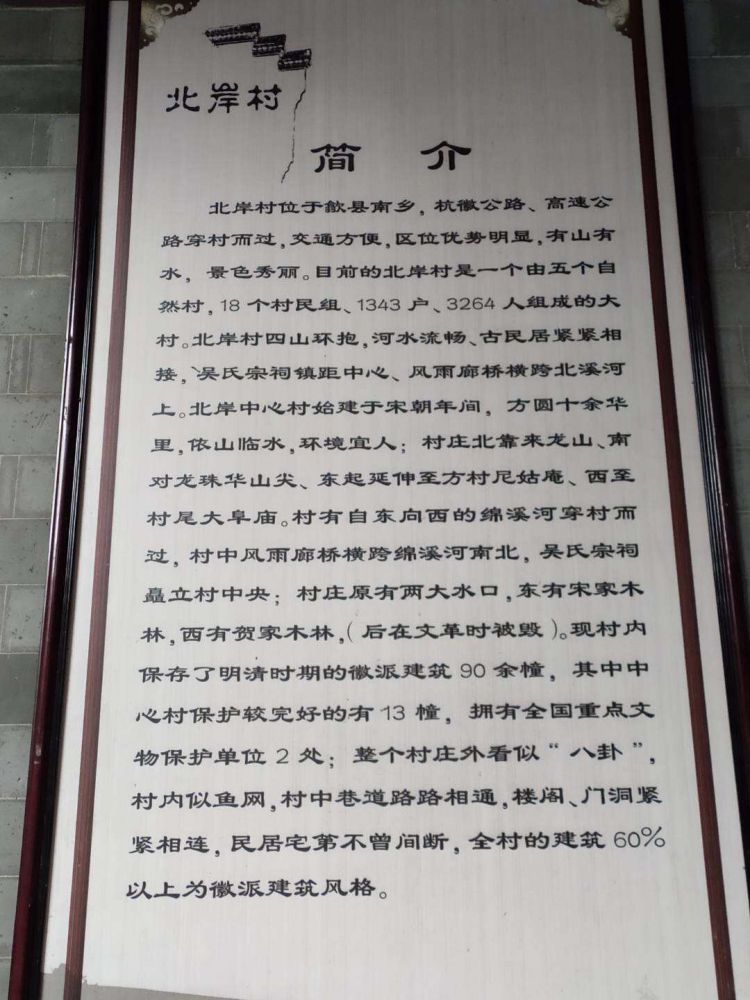 北岸村
简介
北岸村位于歙县南乡，杭徽公路、高速公
路穿村而过，交通方便，区位优势明显，有山有
水，景色秀丽。目前的北岸村是一个由五个自
然村，18个村民组、1343户、3264人组成的大
村。北岸村四山环抱，河水流畅、古民居紧紧相
接，吴氏宗祠镇距中心、风雨廊桥横跨北溪河
上。北岸中心村始建于宋朝年间，方圆十余华
里，依山临水，环境宜人；村庄北靠来龙山、南
对龙珠华山尖、东起延伸至方村尼姑庵、西至
村尾大阜庙。村有自东向西的绵溪河穿村而
过，村中风雨廊桥横跨绵溪河南北，吴氏宗祠
矗立村中央；村庄原有两大水口，东有宋家木
林，西有贺家木林，（后在文革时被毁）。现村内
保存了明清时期的徽派建筑90余幢，其中中
心村保护较完好的有13幢，拥有全国重点文
物保护单位2处；整个村庄外看似“八卦”，
村内似鱼网，村中巷道路路相通，楼阁、门洞紧
紧相连，民居宅第不曾间断，全村的建筑60%
以上为徽派建筑风格。